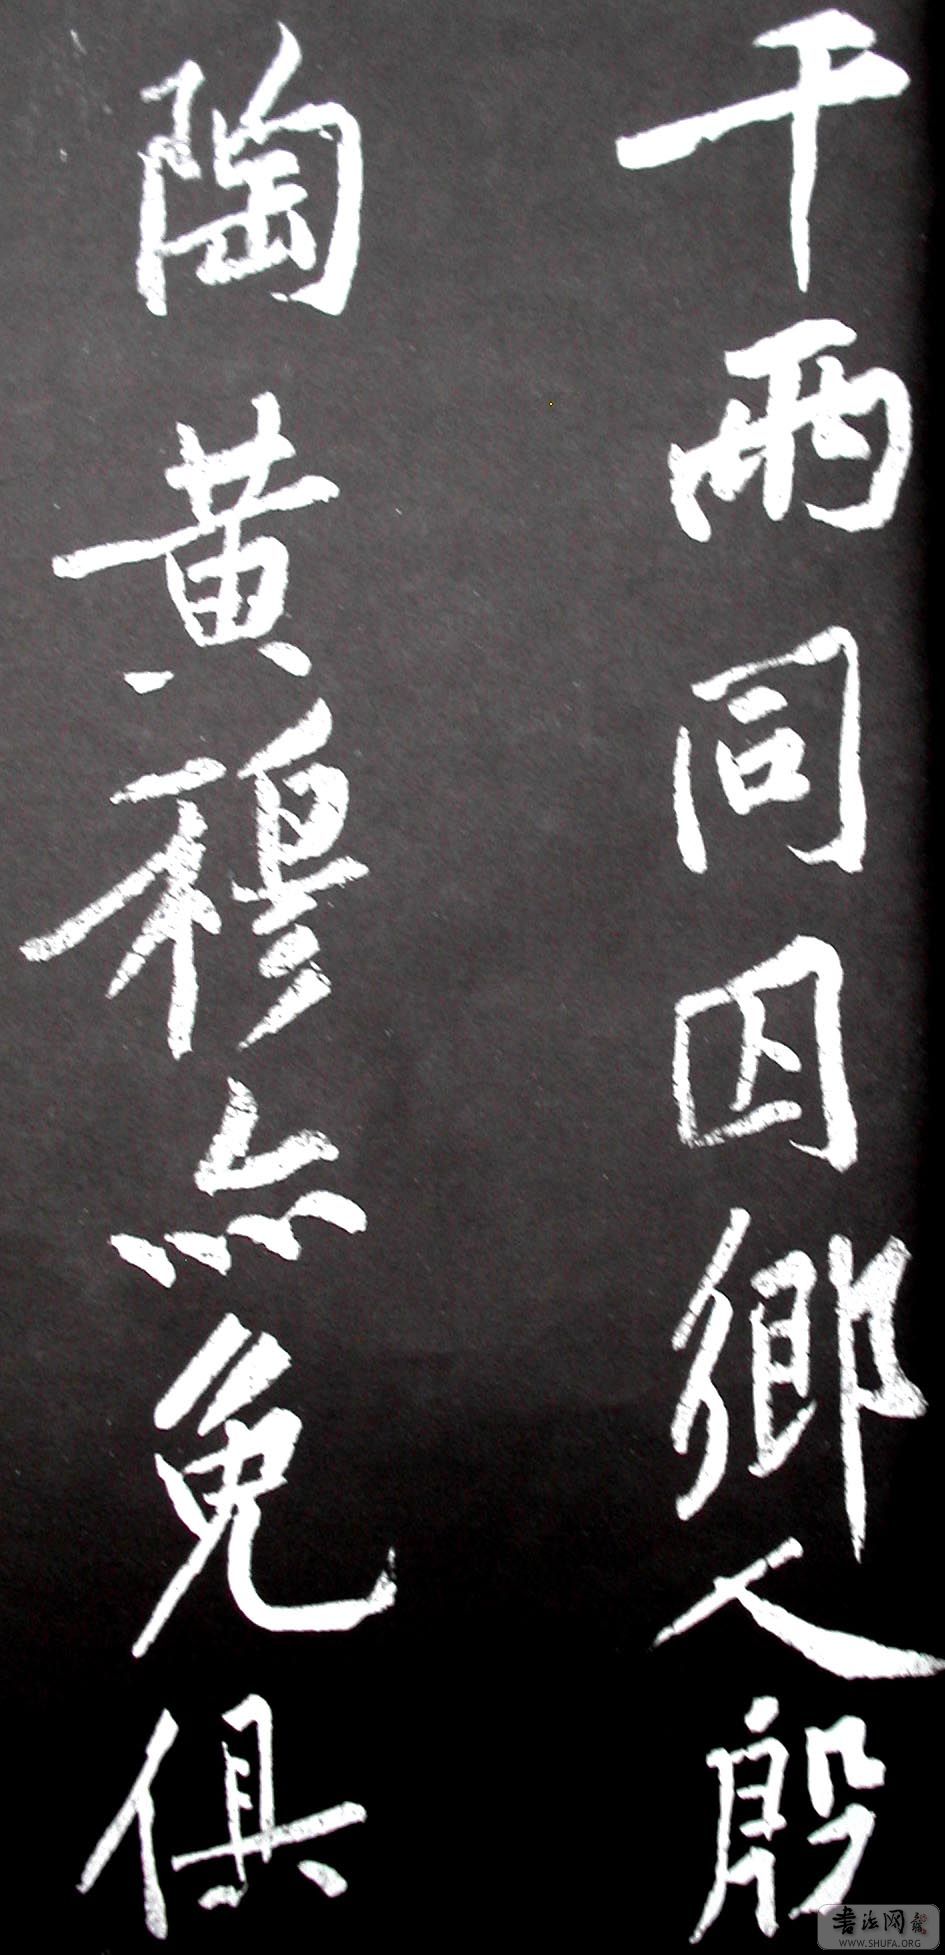 于兩同囚鄉人殷
陶黃穆亦免俱
書法网
WWW.SHUFA.ORG